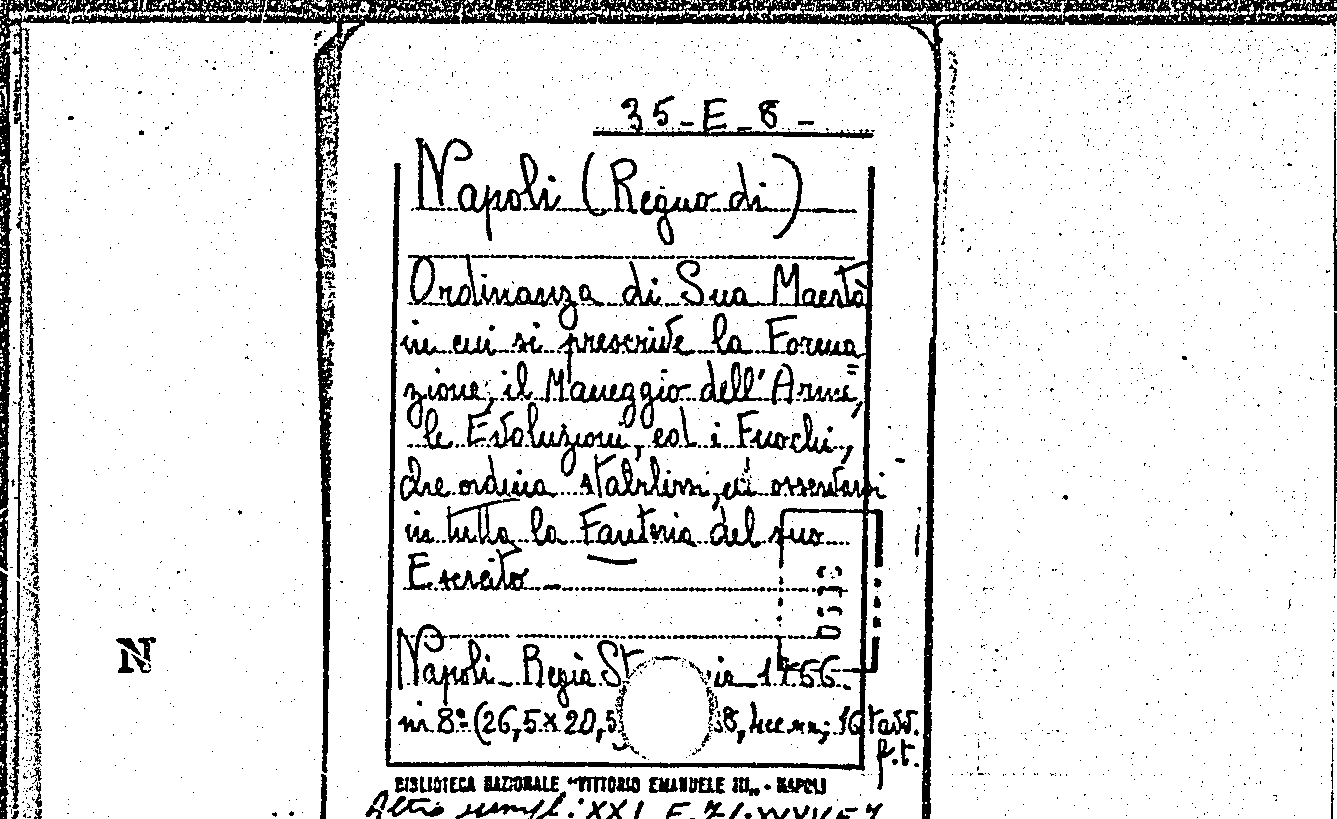 35-E-8-
Napoli (Regno di)
Ordinanza di Sua Maestà
in cui si prescrive la Forma
zione, il Maneggio dell'Armi,
le Evoluzioni, ed i Fuochi,
che ordina stabilirsi, ed osservarsi
in tutta la Fanteria del suo
Esercito -
Napoli - Regia St ia 1766.
in 8º (26,5x20,5 8, ; 16 tavv.
f.t.
BIBLIOTECA NAZIONALE "VITTORIO EMANUELE III" - NAPOLI
Altro
N